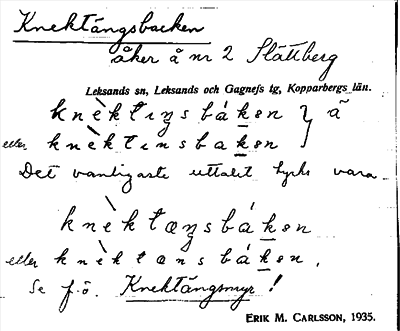 Knektängsbacken
åker å nr 2 Slättberg
Leksands sn, Leksands och Gagnefs tg, Kopparbergs län.
knèktıŋsbákən } å
eller knèktınsbakən
Det vanligaste uttalet tycks vara
knèktæŋsbákən
eller knèktænsbákən.
Se f.ö. Knektängsmyr!
ERIK M. CARLSSON, 1935.